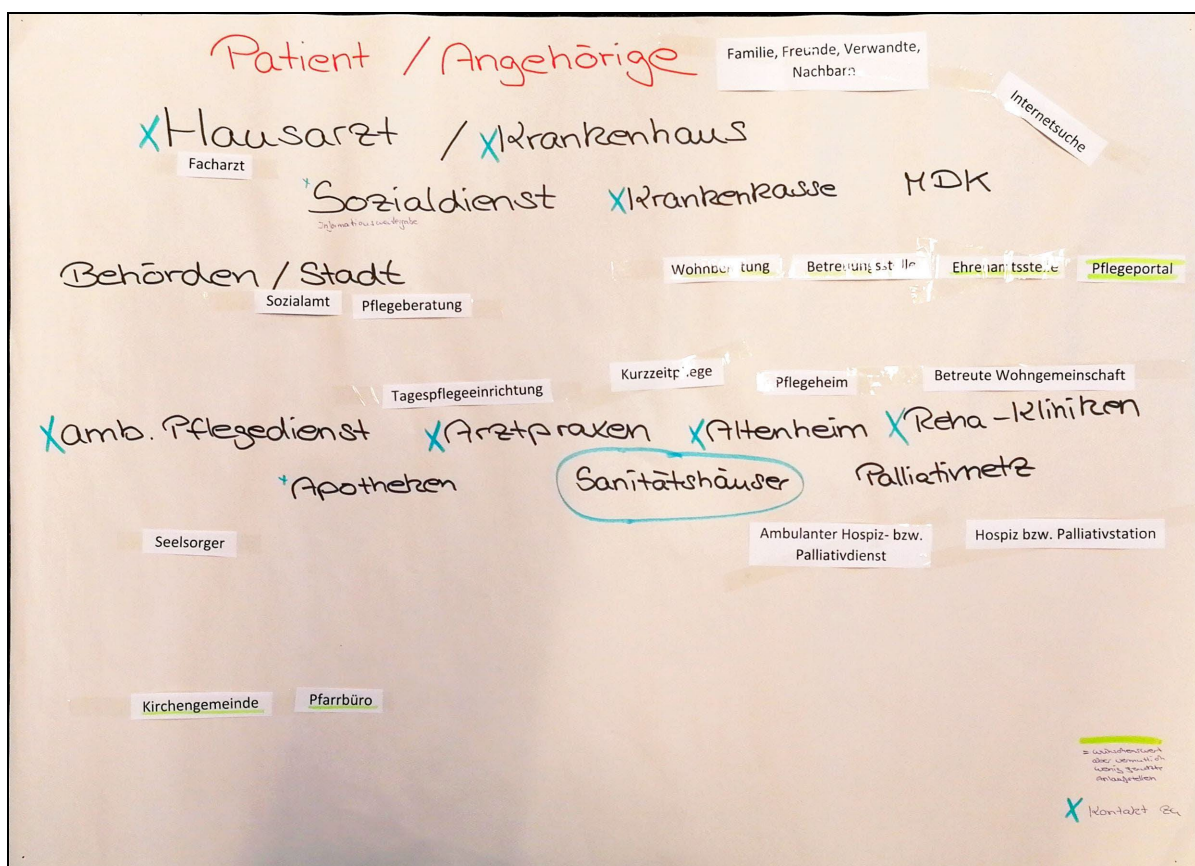 Patient / Angehörige
Familie, Freunde, Verwandte,
Nachbarn
Internetsuche
X Hausarzt / X Krankenhaus
Facharzt
x Sozialdienst X Krankenkasse MDK
Informationsweitergabe
Behörden / Stadt
Wohnberatung Betreuungsstelle Ehrenamtsstelle Pflegeportal
Sozialamt Pflegeberatung
Tagespflegeeinrichtung Kurzzeitpflege Pflegeheim Betreute Wohngemeinschaft
X amb. Pflegedienst X Arztpraxen X Altenheim X Reha-Kliniken
x Apotheken Sanitätshäuser Palliativnetz
Seelsorger
Ambulanter Hospiz- bzw.
Palliativdienst
Hospiz bzw. Palliativstation
Kirchengemeinde Pfarrbüro
= wünschenswert
aber vermutlich
wenig genutzte
Anlaufstellen
X Kontakt zu